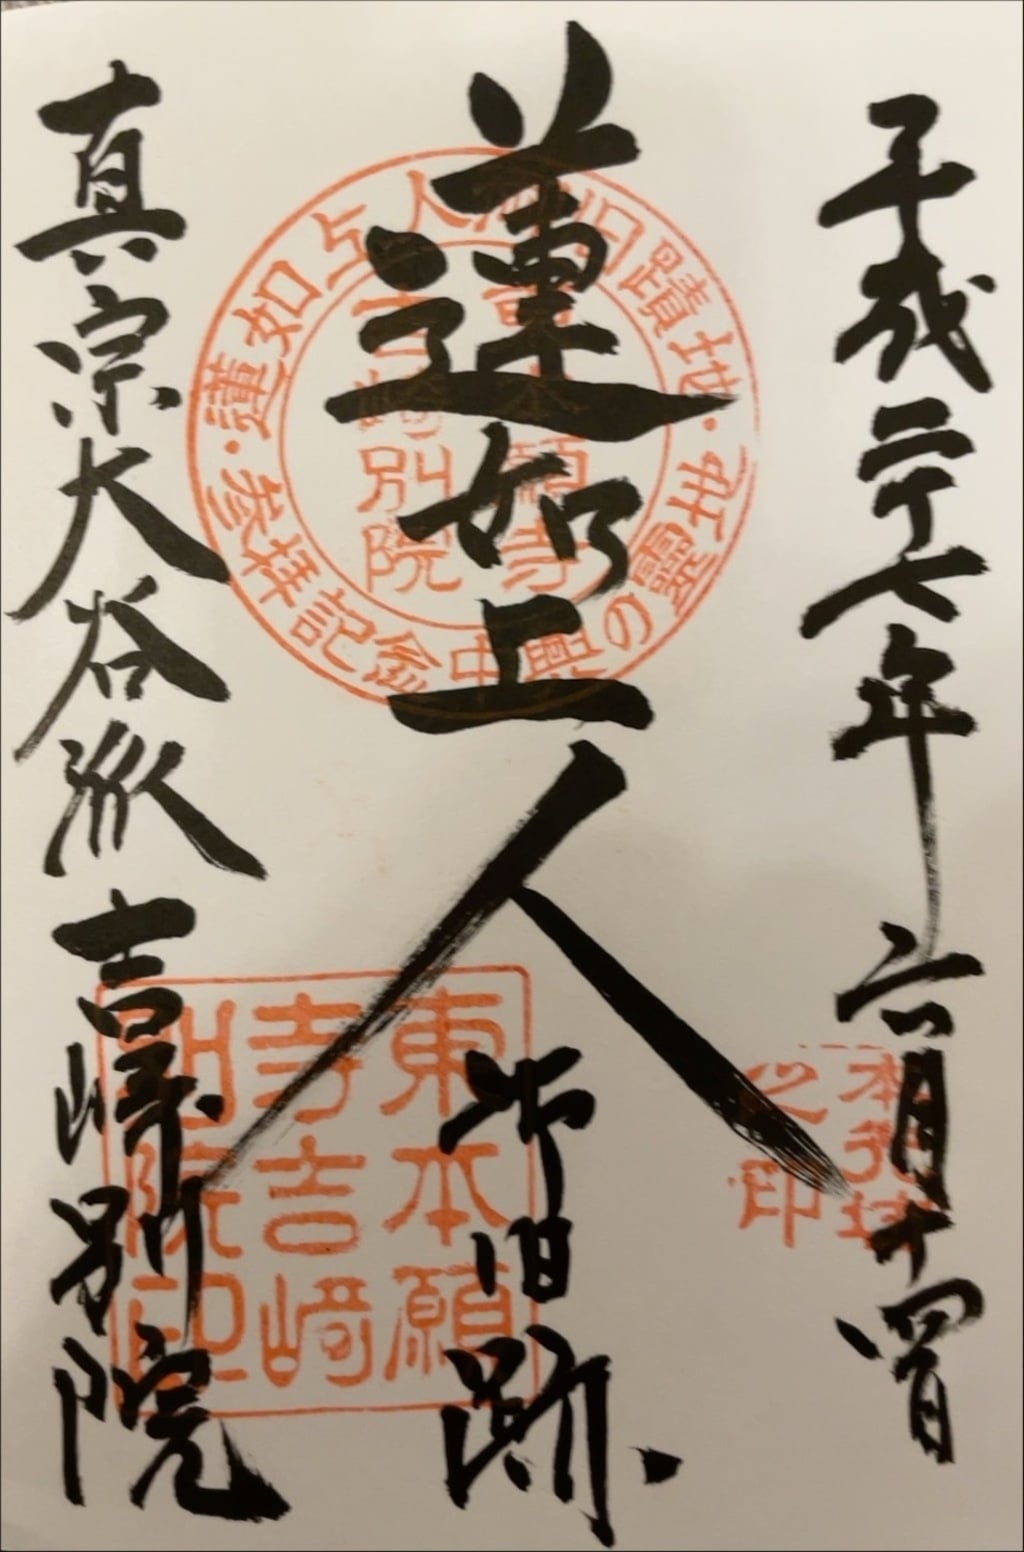 平成二十七年六月十四日
蓮如上人
御旧跡
真宗大谷派
吉崎別院
蓮如上人御旧蹟地・聖霊の中興
参拝記念
東本願寺
吉崎別院
東本願寺吉崎別院印
之印